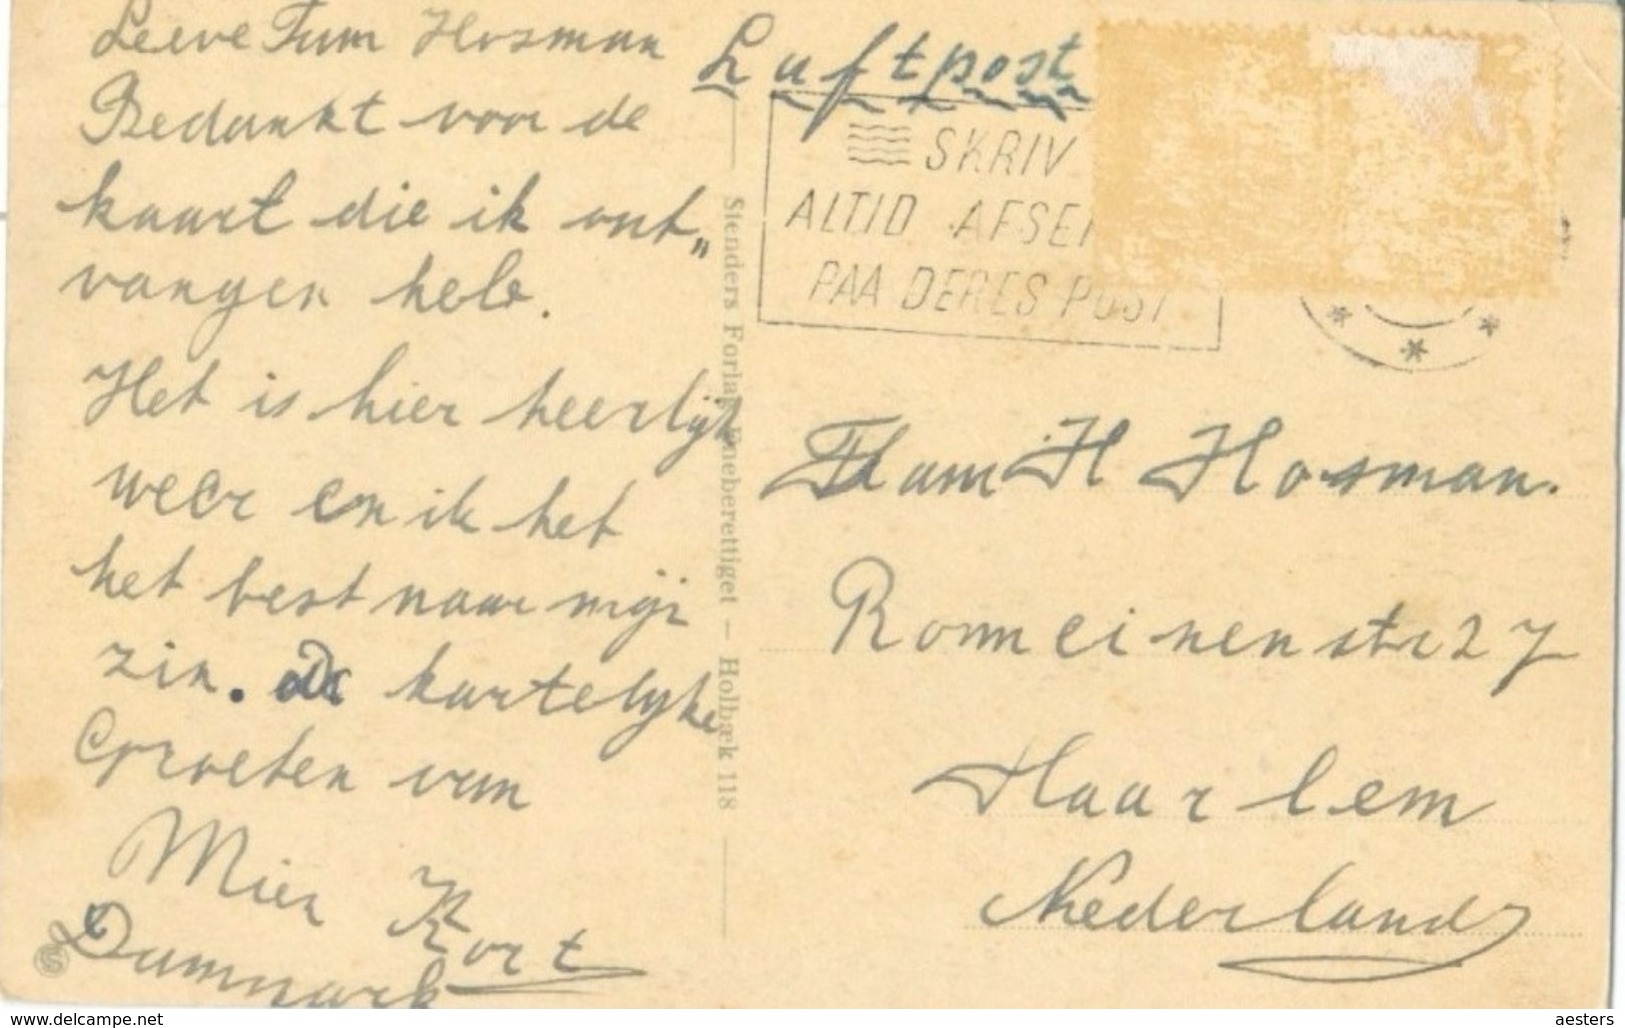 Leeve Fam Hosman
Bedankt voor de
kaart die ik ont„
vangen hele.
Het is hier heerlijk
weer en ik het
het best naar mijn
zin. De hartelijke
Groeten van
Mien Kort
Danmark
Luftpost
SKRIV
ALTID AFSE
PAA DERES POST
Fam H Hosman.
Romeinenstr 27
Haarlem
Nederland
Stenders Forlag Eneberettiget – Holbæk 118
www.delcampe.net
aesters